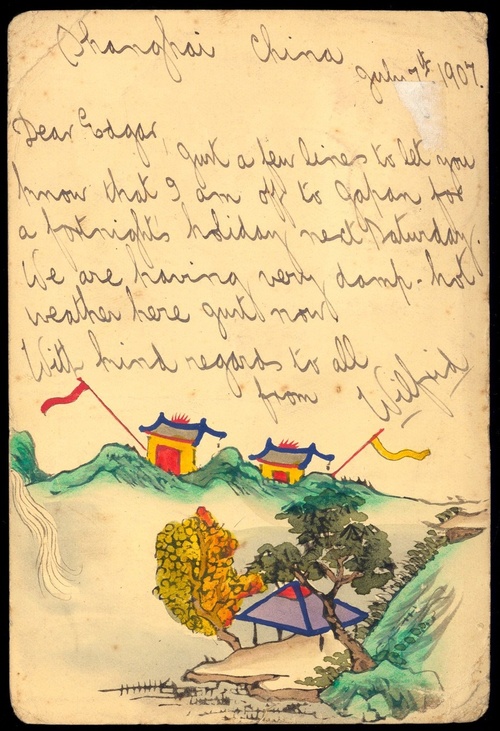 Shanghai China
July 7th 1907.
Dear Edgar,
Just a few lines to let you
know that I am off to Japan for
a fortnight's holiday next Saturday.
We are having very damp-hot
weather here just now
With kind regards to all
from Wilfrid